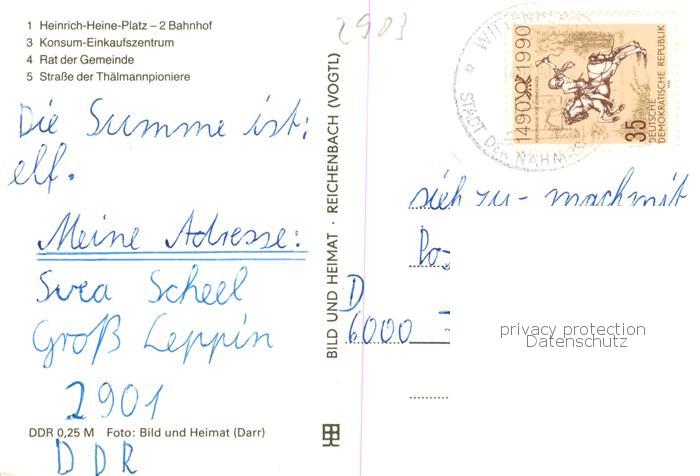 1 Heinrich-Heine-Platz – 2 Bahnhof
3 Konsum-Einkaufszentrum
4 Rat der Gemeinde
5 Straße der Thälmannpioniere
2903
Die Summe ist:
elf.
Meine Adresse:
Svea Scheel
Groß Leppin
2901
DDR 0,25 M Foto: Bild und Heimat (Darr)
DDR
BILD UND HEIMAT · REICHENBACH (VOGTL)
STADT DER NÄHMAS
1490 1990
35
DEUTSCHE
DEMOKRATISCHE REPUBLIK
sieh zu - mach mit
D
6000
privacy protection
Datenschutz